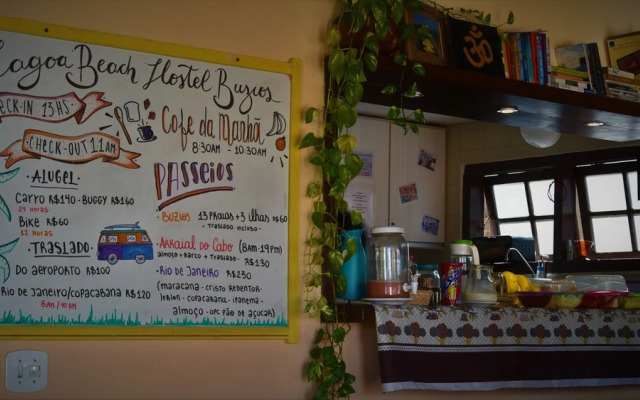 Lagoa Beach Hostel Buzios
CHECK-IN 13HS
CHECK-OUT 11AM
Café da Manhã
8:30AM - 10:30AM
·ALUGEL·
CARRO R$140 - BUGGY R$160
24 HORAS
BIKE R$60
12 HORAS
·TRASLADO·
DO AEROPORTO R$100
RIO DE JANEIRO/COPACABANA R$120
8AM / 10AM
PASSEIOS
·BUZIOS 13 PRAIAS + 3 ILHAS R$60
- TRASLADO INCLUSO -
·ARRAIAL DO CABO (8AM-19PM)
ALMOÇO + BARCO + TRASLADO. R$130
·RIO DE JANEIRO R$230
(MARACANA - CRISTO REDENTOR -
LEBLON - COPACABANA - IPANEMA -
ALMOÇO - OPC PÃO DE AÇUCAR)
ॐ